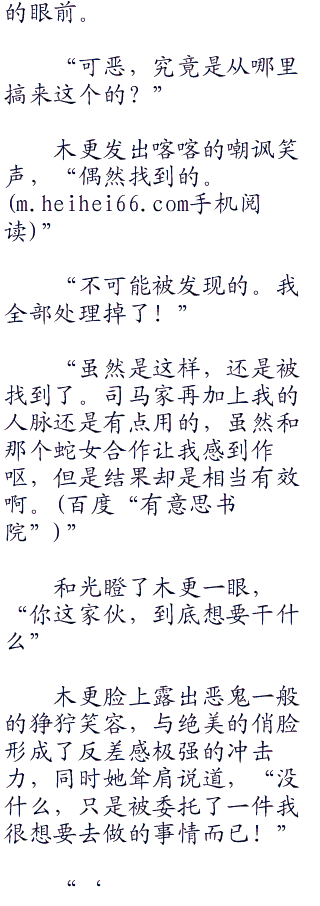 的眼前。
“可恶，究竟是从哪里
搞来这个的？”
木更发出喀喀的嘲讽笑
声，“偶然找到的。
(m.heihei66.com手机阅
读)”
“不可能被发现的。我
全部处理掉了！”
“虽然是这样，还是被
找到了。司马家再加上我的
人脉还是有点用的，虽然和
那个蛇女合作让我感到作
呕，但是结果却是相当有效
啊。(百度“有意思书
院”)”
和光瞪了木更一眼，
“你这家伙，到底想要干什
么”
木更脸上露出恶鬼一般
的狰狞笑容，与绝美的俏脸
形成了反差感极强的冲击
力，同时她耸肩说道，“没
什么，只是被委托了一件我
很想要去做的事情而已！”
“‘